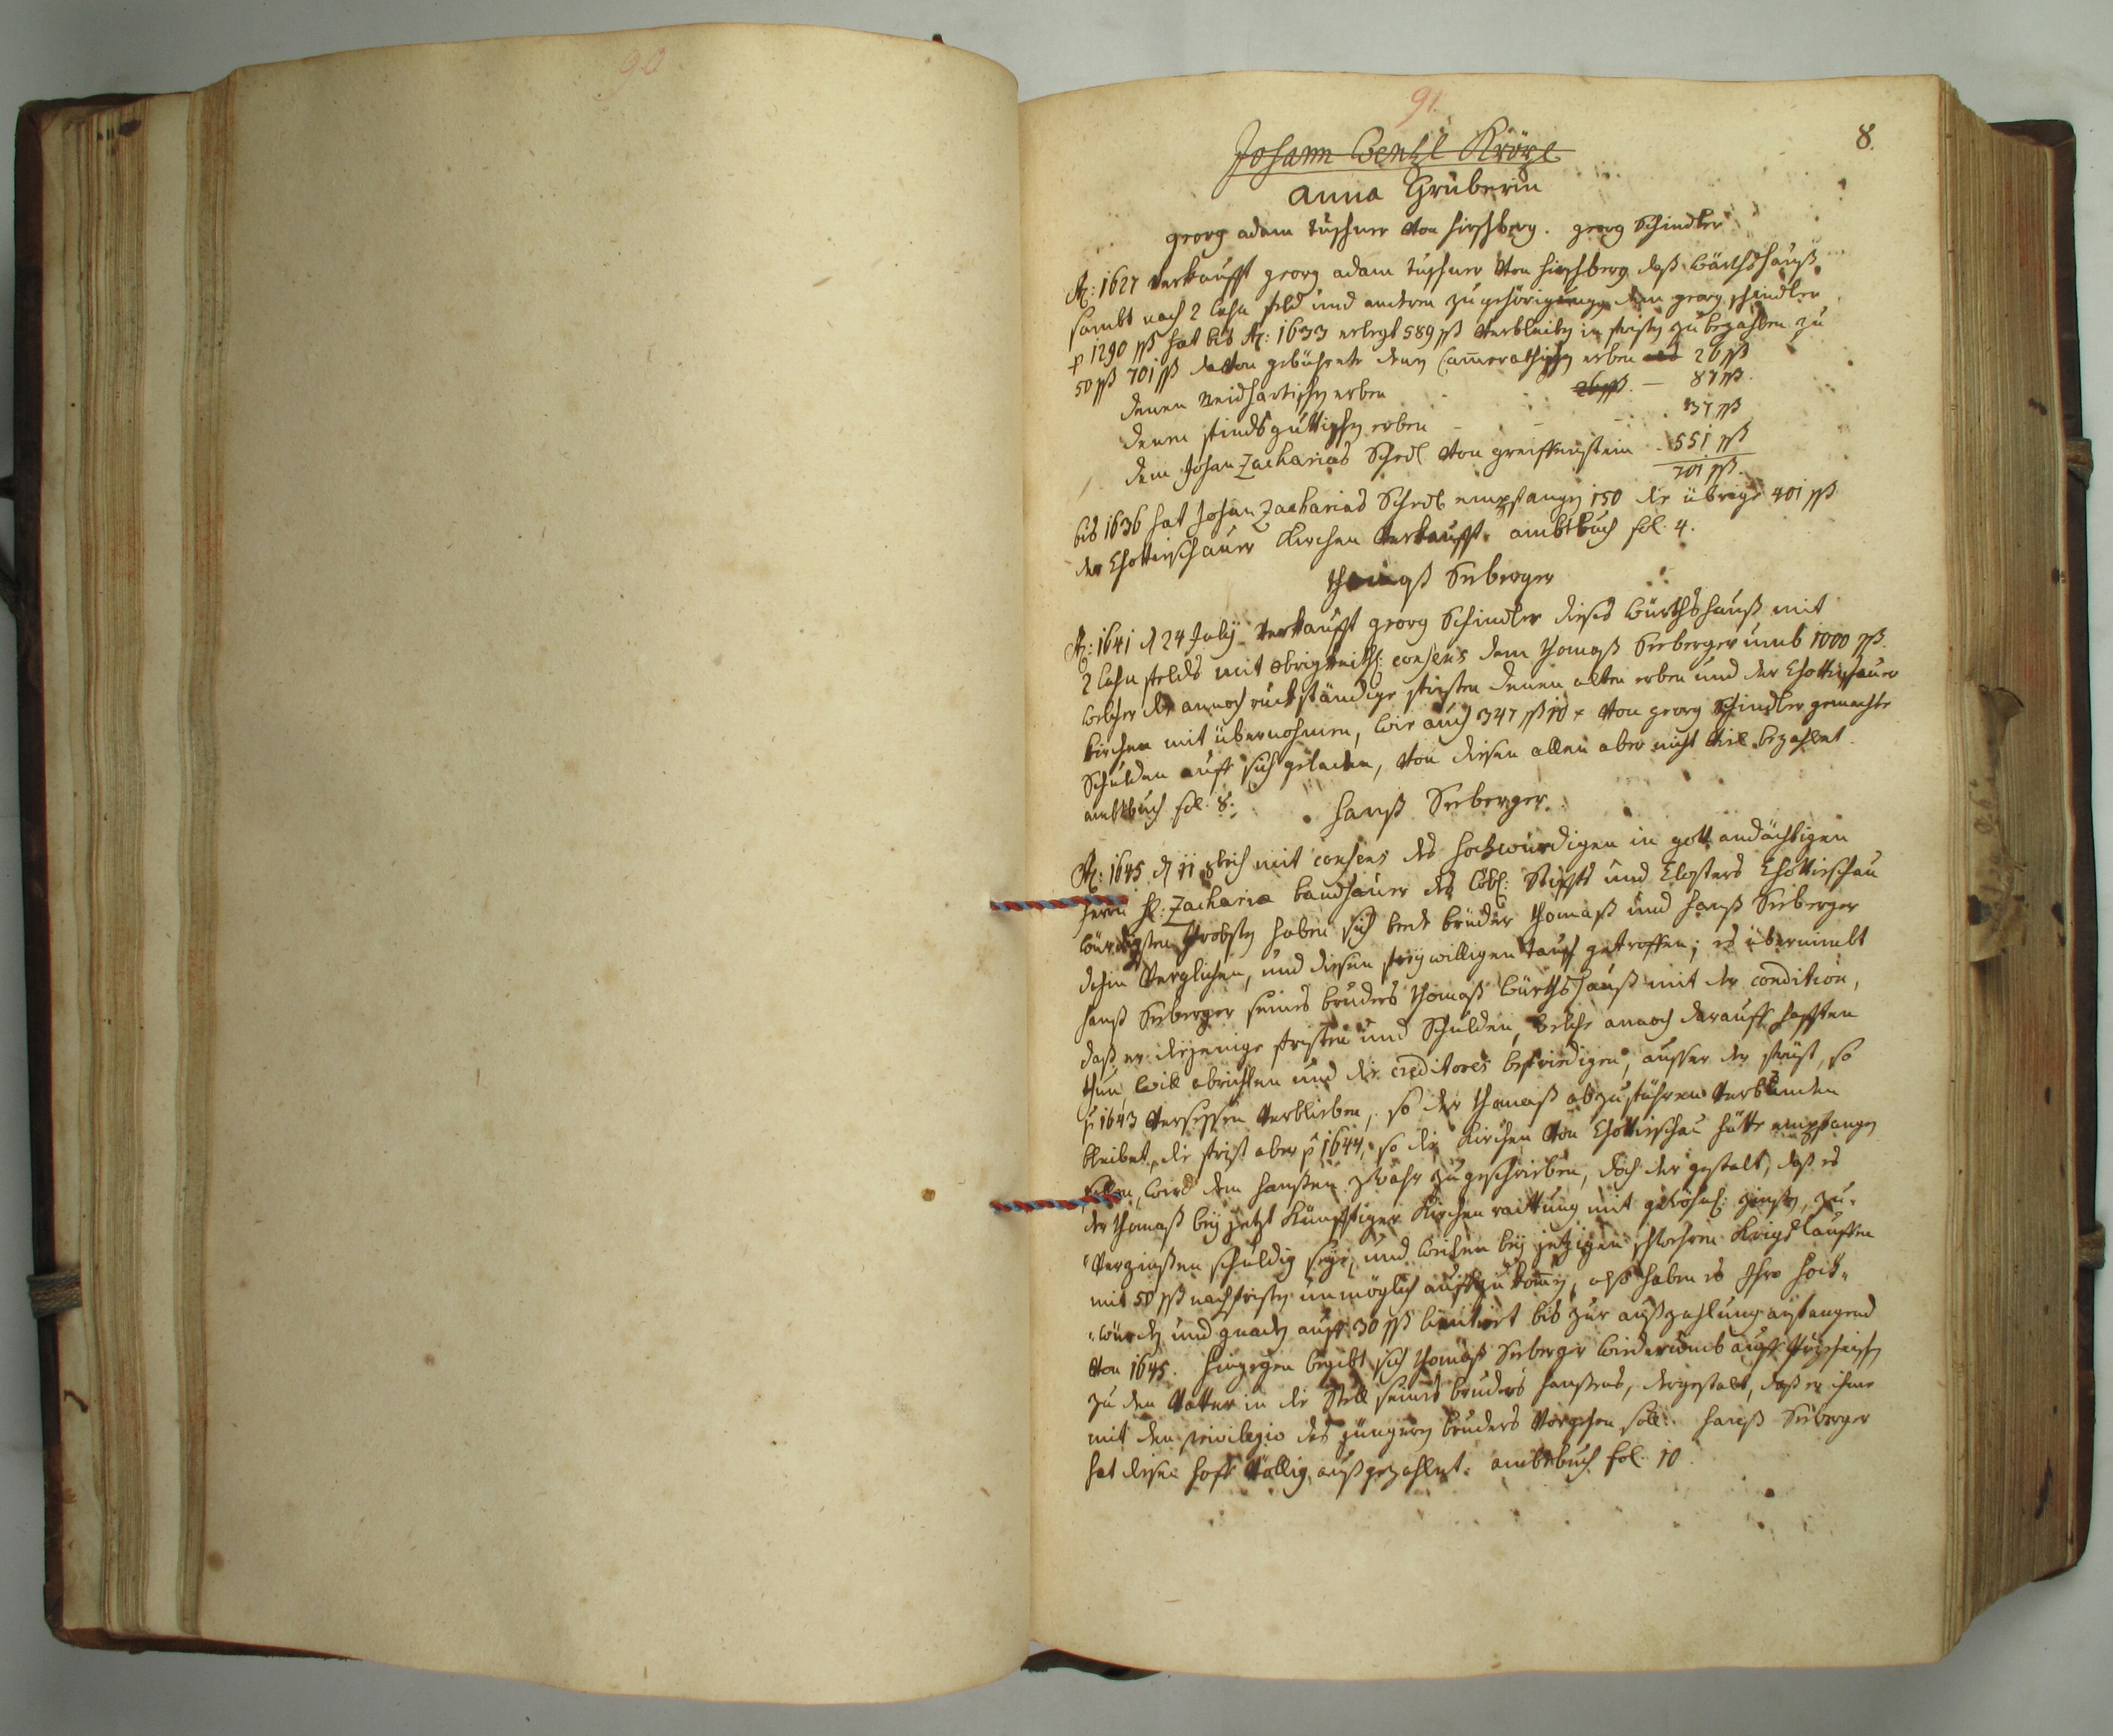 90
91.
8.
Johann Wentzl Kröxl
Anna Gruberin
Georg Adam Tüschner von Hirschberg. Georg Schindler
Aō: 1627 verkaufft Georg Adam Tüschner von Hirschberg daß Würthshauß
sambt nach 2 Lehn feld und anderen zugehörigungen dem Georg Schindler
p 1290 ßß hat bis Aō: 1633 erlegt 589 ßß verbleiben in fristen zu bezahlen zu
50 ßß 701 ßß davon gebührete denen erben 26 ßß
denen Neidhartischen erben 26 ßß. — 87 ßß.
denen erben - - - 37 ßß
dem Johan Zacharias Schedl von Greiffenstein . 551 ßß
701 ßß.
bis 1636 hat Johan Zacharias Schedl empfangen 150 die übrige 401 ßß
der Chottieschauer Kirchen verkaufft. ambtbuch fol. 4.
Thomaß Seeberger
Aō: 1641 d 24 July verkaufft Georg Schindler dieses Würthshauß mit
2 Lehn felds mit obrigkeitl: consens dem Thomaß Seeberger umb 1000 ßß.
welcher die annoch ruckständige fristen denen alten erben und der Chottieschauer
Kirchen mit übernohmen, wie auch 347 ßß 10 x von Georg Schindler gemachte
Schulden auff sich geladen, von diesen allen aber nicht viel bezahlet.
ambtbuch fol. 8.
Hanß Seeberger.
Aō: 1645 d 11 mit consens des hochwürdigen in gott andächtigen
herrn H: Zachariæ Bandhauer des löbl: Stiffts und Closters Chottieschau
würdigsten Probsten haben sich beede brüder Thomaß und Hanß Seeberger
dahin verglichen, und diesen freywilligen tausch getroffen; es übernimbt
Hanß Seeberger seines bruders Thomaß Würthshauß mit der condition,
daß er diejenige fristen und Schulden, welche annoch darauff hafften
thun, will abrichten und die creditores befriedigen, ausser der frist, so
p 1643 versessen verblieben, so der Thomaß abzuführen verbunden
bleibet, die frist aber p 1644, so die Kirchen von Chottieschau hätte empfangen
sollen, wird dem Hanßen zwahr zugeschrieben, doch der gestalt, daß es
der Thomaß bey jetzt künfftiger Kirchen raittung mit gewöhnl: zinsen, zu-
verzinßen schuldig seye, und weilen bey jetzigen schwehren Kriegsläuffen
mit 50 ßß nachfristen unmöglich auffzukommen, also haben es Ihro Hoch-
würden und gnaden auff 30 ßß limitirt bis zur außzahlung anfangend
von 1645. Hingegen begibt sich Thomaß Seeberger wiederumb auff
zu dem Vatter in die Stell seines bruders Hanßens, dergestalt, daß er ihme
mit dem privilegio des jüngern bruders vorgehen soll. Hanß Seeberger
hat diesen hoff völlig außgezahlet. ambtbuch fol. 10.